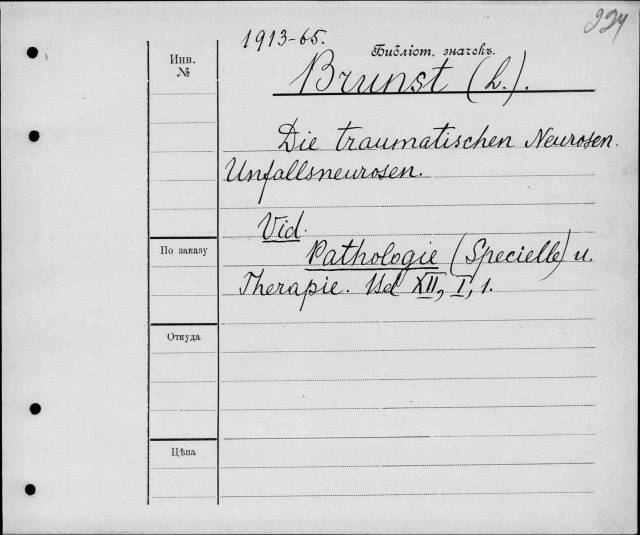 224
1913-65.
Инв.
№
Библіот. значекъ.
Brunst (L.).
Die traumatischen Neurosen.
Unfallsneurosen.
Vid.
По заказу
Pathologie (Specielle) u.
Therapie. Bd XII, I, 1.
Откуда
Цѣна